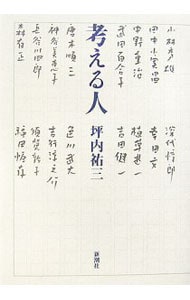 考える人
坪内祐三
新潮社
小林秀雄
田中小実昌
中野重治
武田百合子
唐木順三
神谷美恵子
長谷川四郎
森有正
深代惇郎
幸田文
植草甚一
吉田健一
色川武大
吉行淳之介
須賀敦子
福田恆存